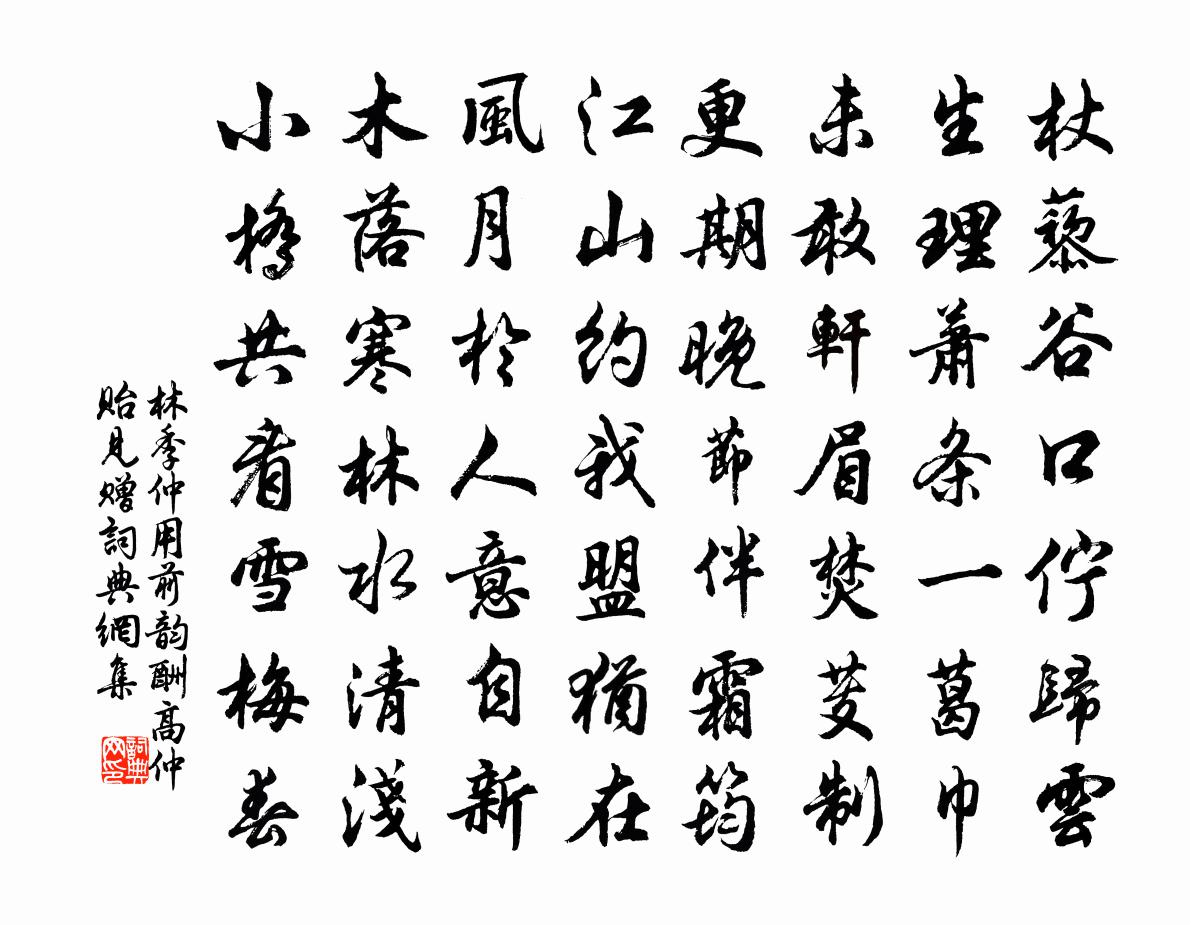 杖藜谷口佇歸雲
生理蕭条一葛巾
未敢軒眉焚芰制
更期晚節伴霜筠
江山約我盟猶在
風月於人意自新
木落寒林水清淺
小橋共看雪梅春
林季仲用前韵酬高仲
貽見贈詞典網集
詞典網印